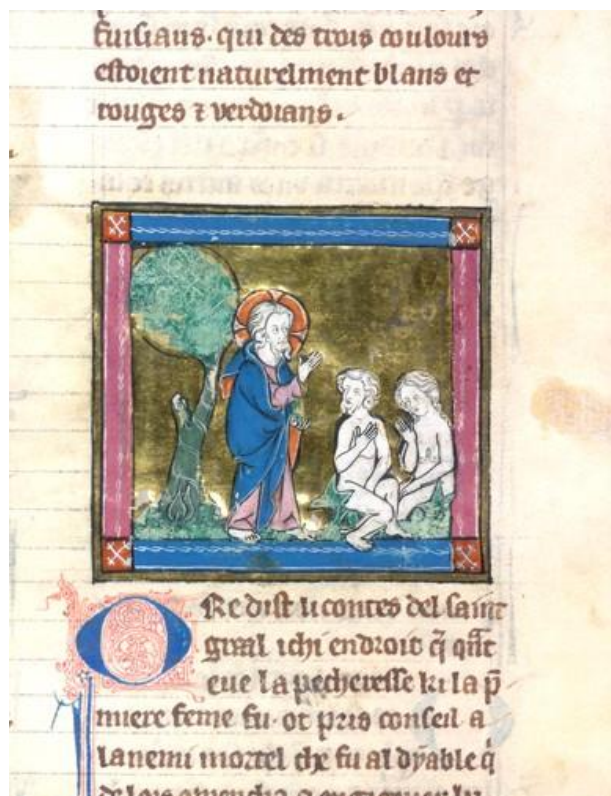 fuisiaus. qui des trois coulours
estoient naturelment blans et
rouges ⁊ verdoians.
Ore dist li contes del saint
graal ichi endroit q̃ qãt
eue la pecheresse ki la p̃
miere feme fu. ot pris conseil a
lanemi mortel che fu al dyable q̃